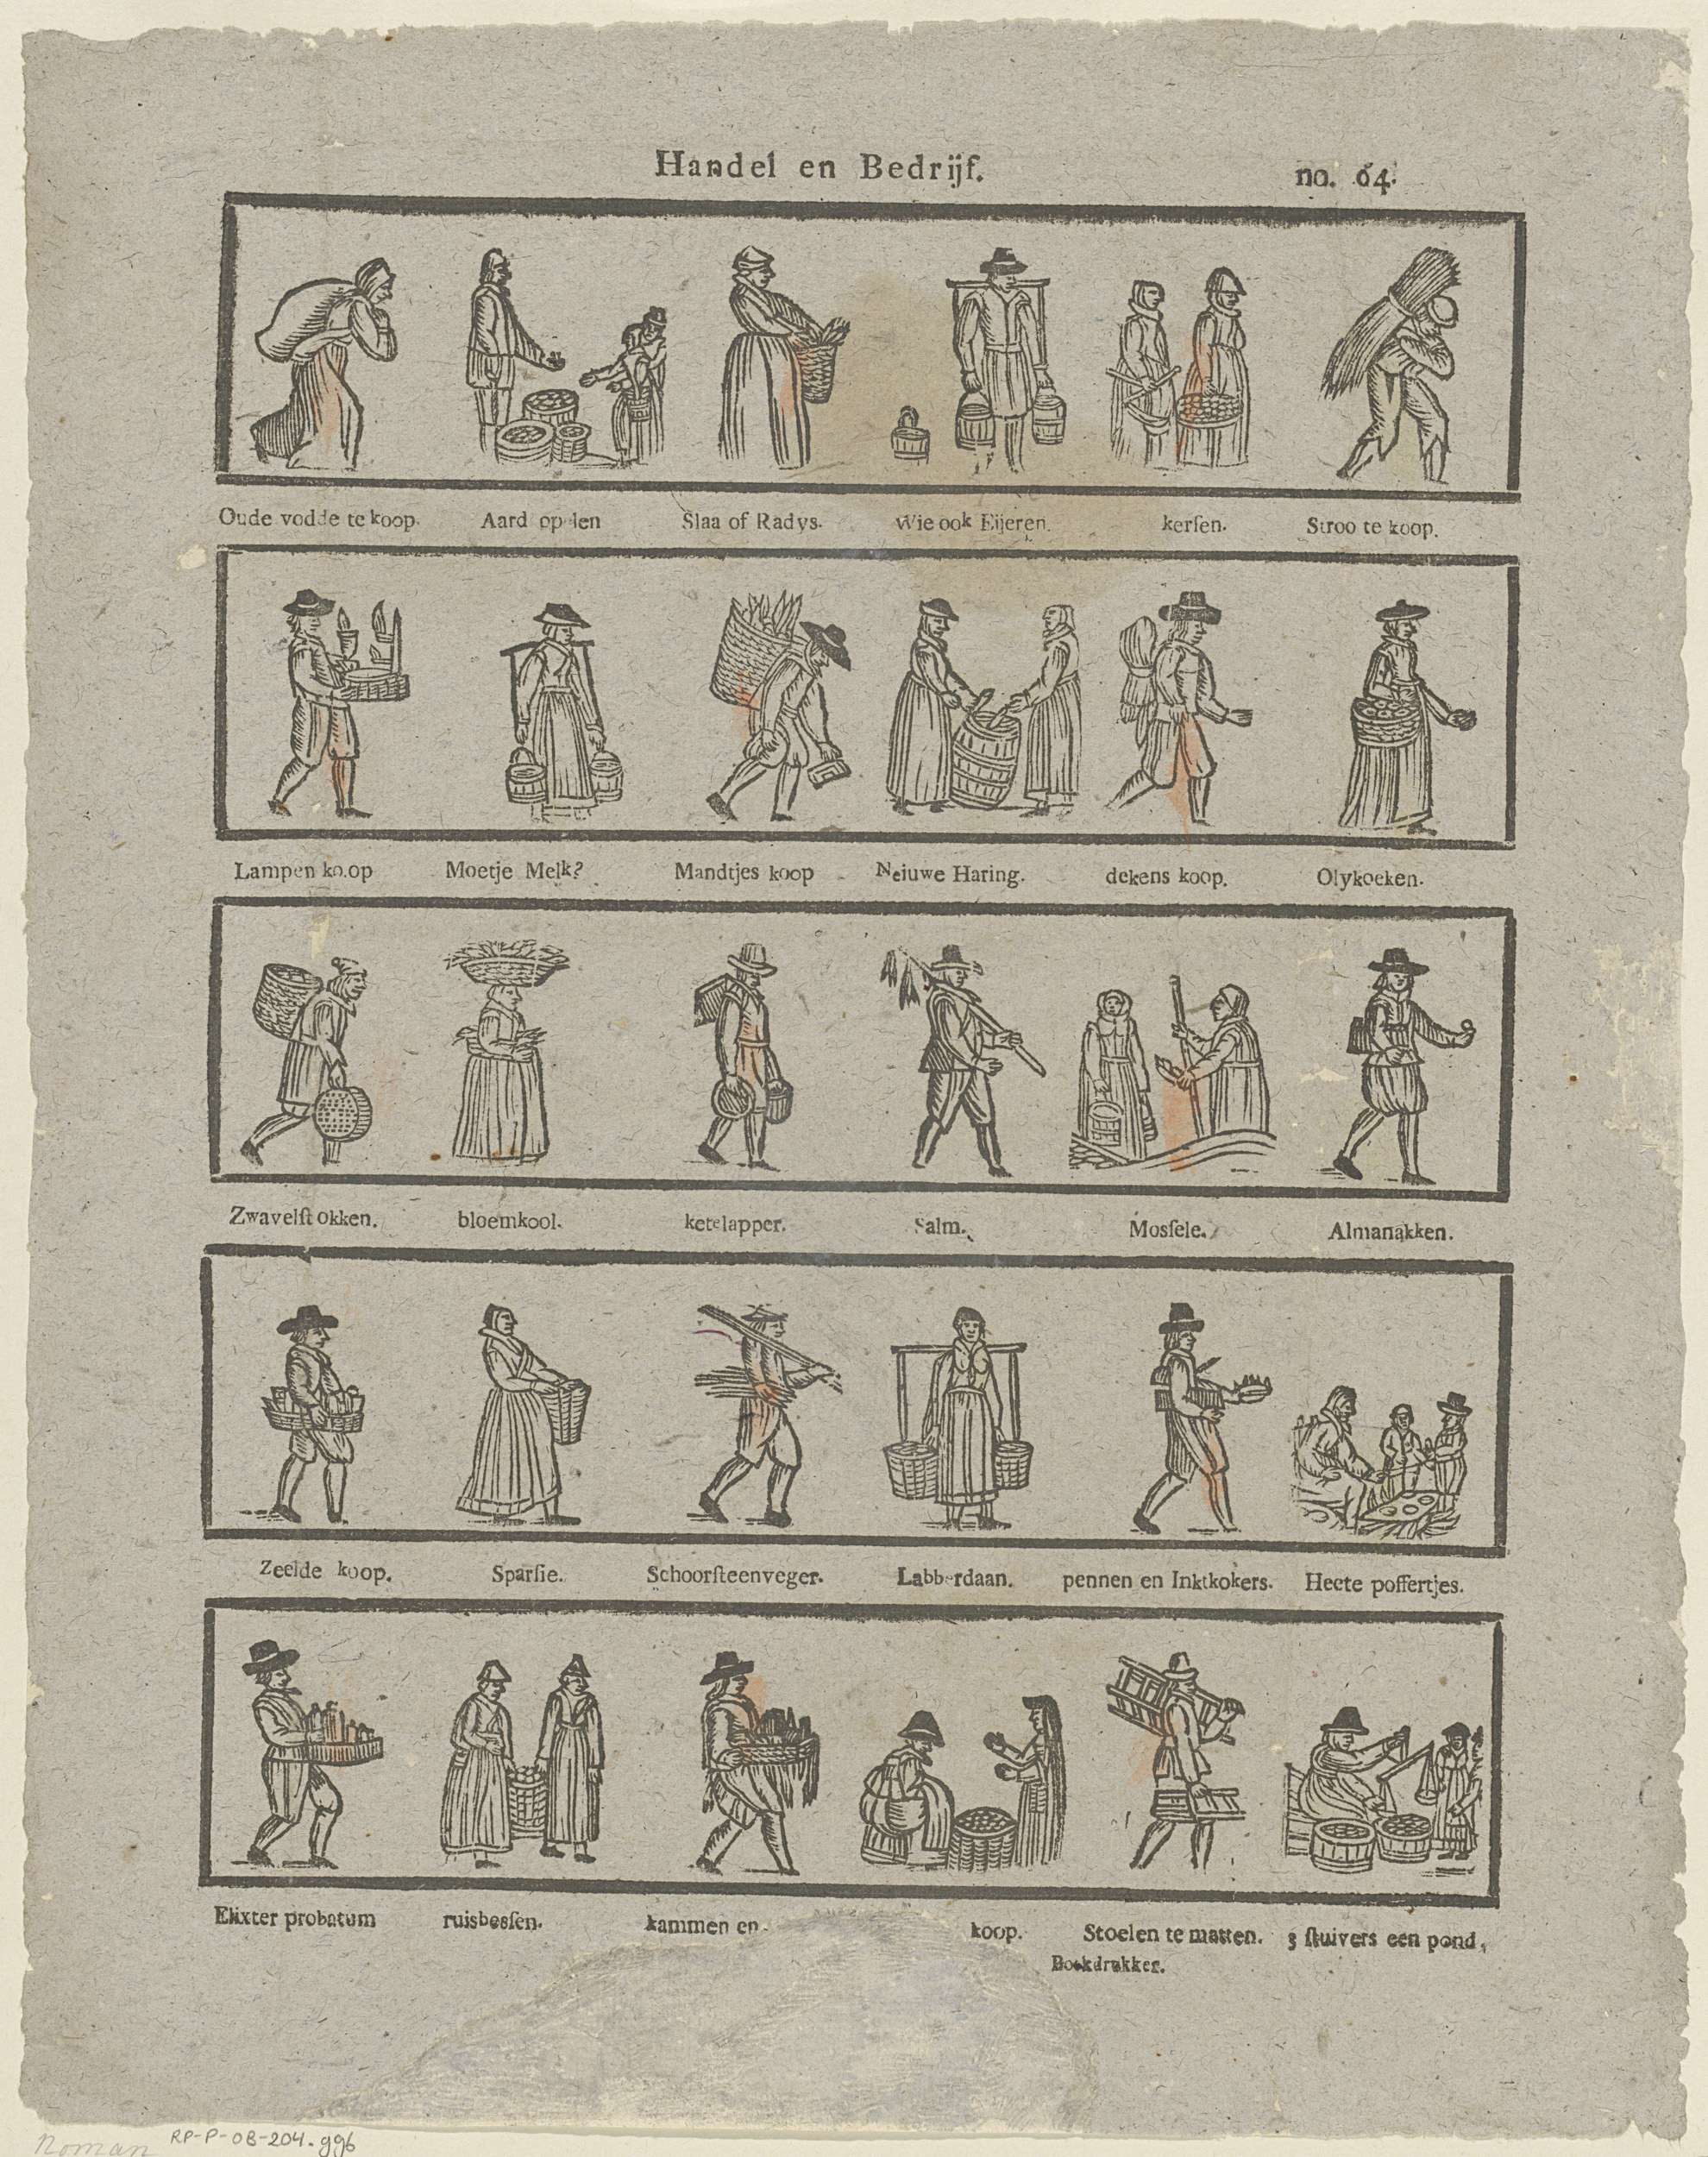 Handel en Bedrijf. no. 64.
Oude vodde te koop. Aard op len Slaa of Radys. Wie ook Eijeren. kerſen. Stroo te koop.
Lampen ko.op Moetje Melk? Mandtjes koop Neiuwe Haring. dekens koop. Olykoeken.
Zwavelſtokken. bloemkool. ketelapper. Salm. Mosſele. Almanakken.
Zeelde koop. Sparſie. Schoorſteenveger. Labberdaan. pennen en Inktkokers. Heete poffertjes.
Elixter probatum ruisbesſen. kammen en koop. Stoelen te matten. 3 ſtuivers een pond,
Boekdrukker.
Noman RP-P-OB-204.996